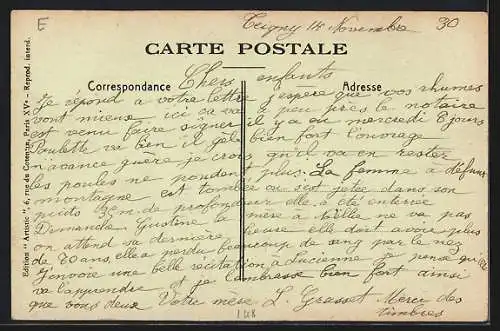 E
Teigny 14 Novembre 30
CARTE POSTALE
Correspondance
Adresse
Chers enfants
Je répond a votre lettre j'espere que vos rhumes
vont mieux ici ca va a peu près le notaire
est venu faire signer il y a eu mercredi 8 jours
Poulette va bien il gèle bien fort l'ouvrage
n'avance guère je crois qu'il va en rester
les poules ne pondent plus. La femme a defunt
montagne est tombée ou s'est jetée dans son
puits de profondeur elle a été enterrée
Dimanda Gustine la mère a Belle ne va pas
on attend sa derniere heure elle doit avoir plus
de 80 ans, elle a perdu beaucoup de sang par le nez
une belle récitation a Lucienne je pense qu'elle
va l'apprendre et je l'embrasse bien fort ainsi
que vous deux Votre mère L. Grasset Merci des
timbres
Editions "Artistic", 6, rue du Cotentin, Paris XVe - Reprod. interd.